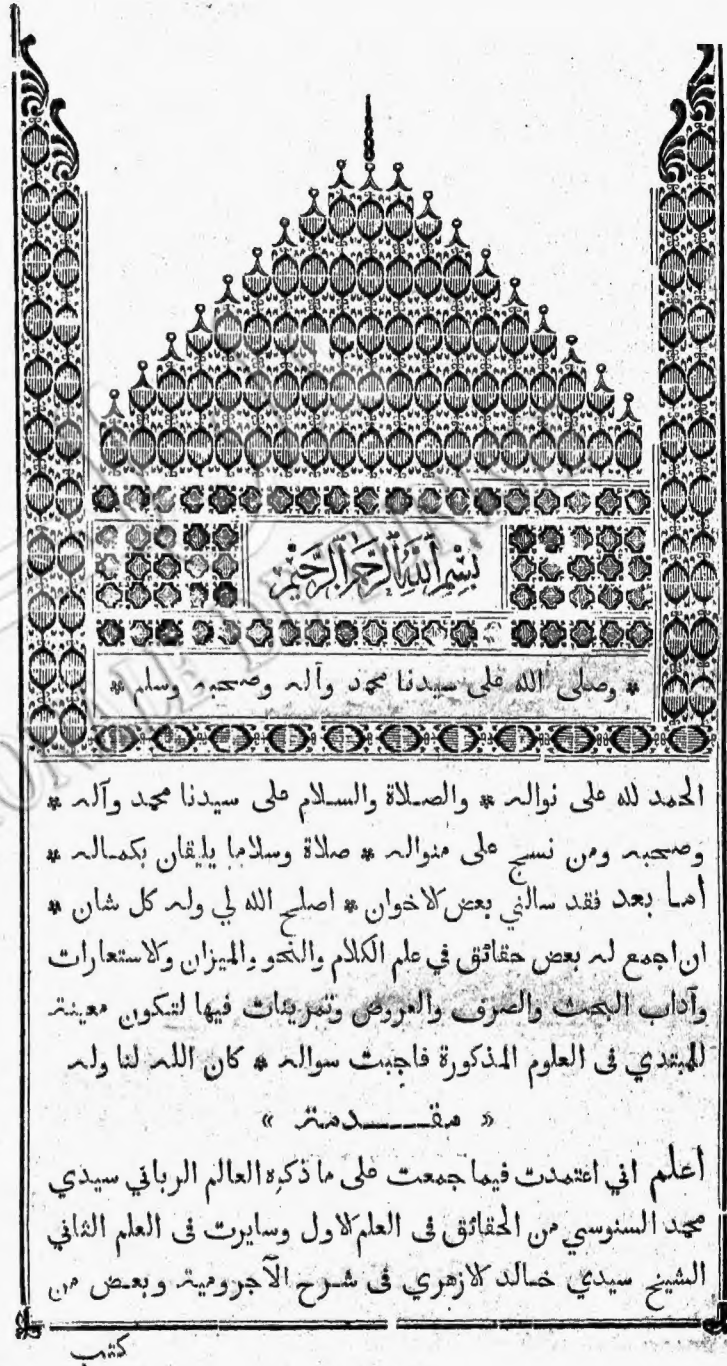 بسم الله الرحمن الرحيم
* وصلى الله على سيدنا محمد وآله وصحبه وسلم *
الحمد لله على نواله * والصلاة والسلام على سيدنا محمد وآله *
وصحبه ومن نسج على منواله * صلاة وسلاما يليقان بكماله *
أما بعد فقد سالني بعض الاخوان * اصلح الله لي وله كل شان *
ان اجمع له بعض حقائق في علم الكلام والنحو والميزان والاستعارات
وآداب البحث والصرف والعروض وتمرينات فيها لتكون معينة
للمبتدي في العلوم المذكورة فاجبت سواله * كان الله لنا وله
« مقدمة »
أعلم اني اعتمدت فيما جمعت على ما ذكره العالم الرباني سيدي
محمد السنوسي من الحقائق في العلم الاول وسايرت في العلم الثاني
الشيخ سيدي خالد الازهري في شرح الآجرومية وبعض من
كتب